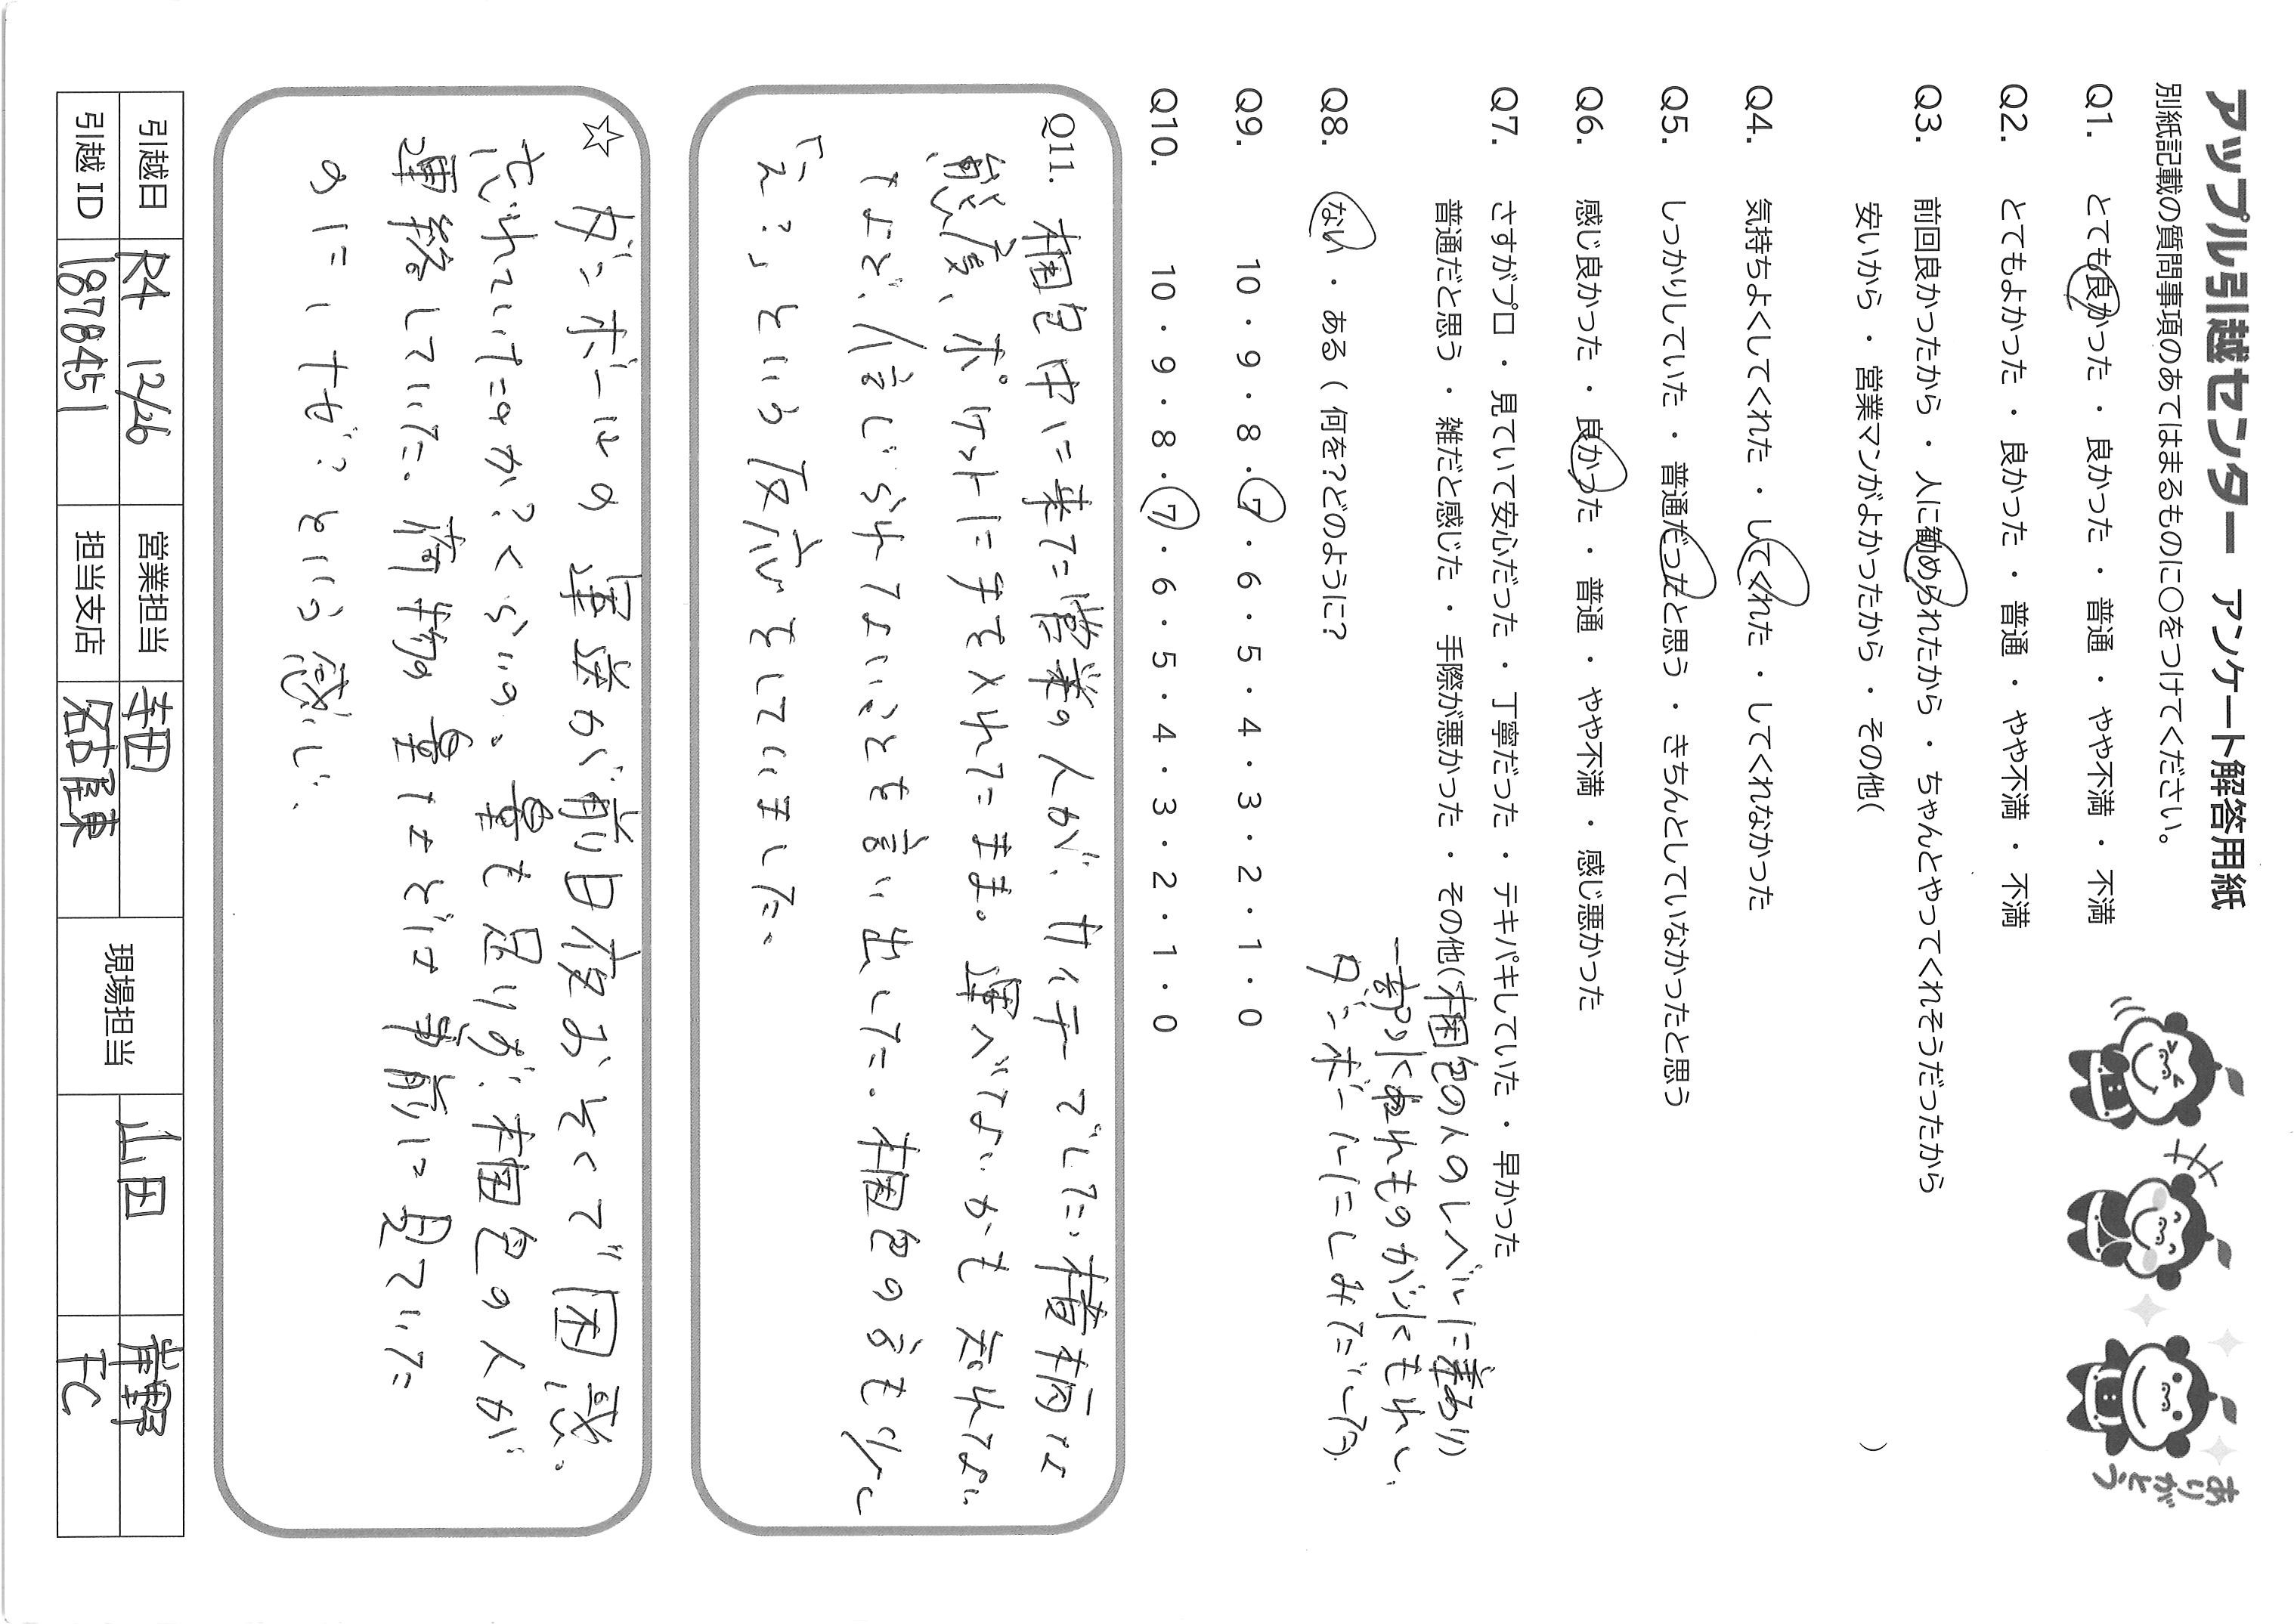 アップル引越センター アンケート解答用紙
別紙記載の質問事項のあてはまるものに○をつけてください。
Q1. とても良かった ・ 良かった ・ 普通 ・ やや不満 ・ 不満
Q2. とてもよかった ・ 良かった ・ 普通 ・ やや不満 ・ 不満
Q3. 前回良かったから ・ 人に勧められたから ・ ちゃんとやってくれそうだったから
安いから ・ 営業マンがよかったから ・ その他( )
Q4. 気持ちよくしてくれた ・ してくれた ・ してくれなかった
Q5. しっかりしていた ・ 普通だったと思う ・ きちんとしていなかったと思う
Q6. 感じ良かった ・ 良かった ・ 普通 ・ やや不満 ・ 感じ悪かった
Q7. さすがプロ ・ 見ていて安心だった ・ 丁寧だった ・ テキパキしていた ・ 早かった
普通だと思う ・ 雑だと感じた ・ 手際が悪かった ・ その他(梱包の人のレベルに差あり)
一部水ぬれものが水もれし、
ダンボールにしみたが…
Q8. ない ・ ある ( 何を?どのように?
Q9. 10 ・ 9 ・ 8 ・ 7 ・ 6 ・ 5 ・ 4 ・ 3 ・ 2 ・ 1 ・ 0
Q10. 10 ・ 9 ・ 8 ・ 7 ・ 6 ・ 5 ・ 4 ・ 3 ・ 2 ・ 1 ・ 0
Q11. 梱包中に来た営業の人が、サイテーでした。横柄な
態度、ポケットに手を入れたまま。運べないかも知れない
など、信じられないことを言い出した。梱包の方も少し
「え?」という反応をしていました。
☆ ダンボールの運送が前日夜おそくで困惑。
忘れていたのか?くらいの。量も足りず、梱包の人が
連絡していた。荷物の量などは事前に見ていた
のにナゼ?という感じ、
引越日 R4 12/26 営業担当 寺田 現場担当 山田 青野
引越ID 1878451 担当支店 名古屋東 FC
ありがとう